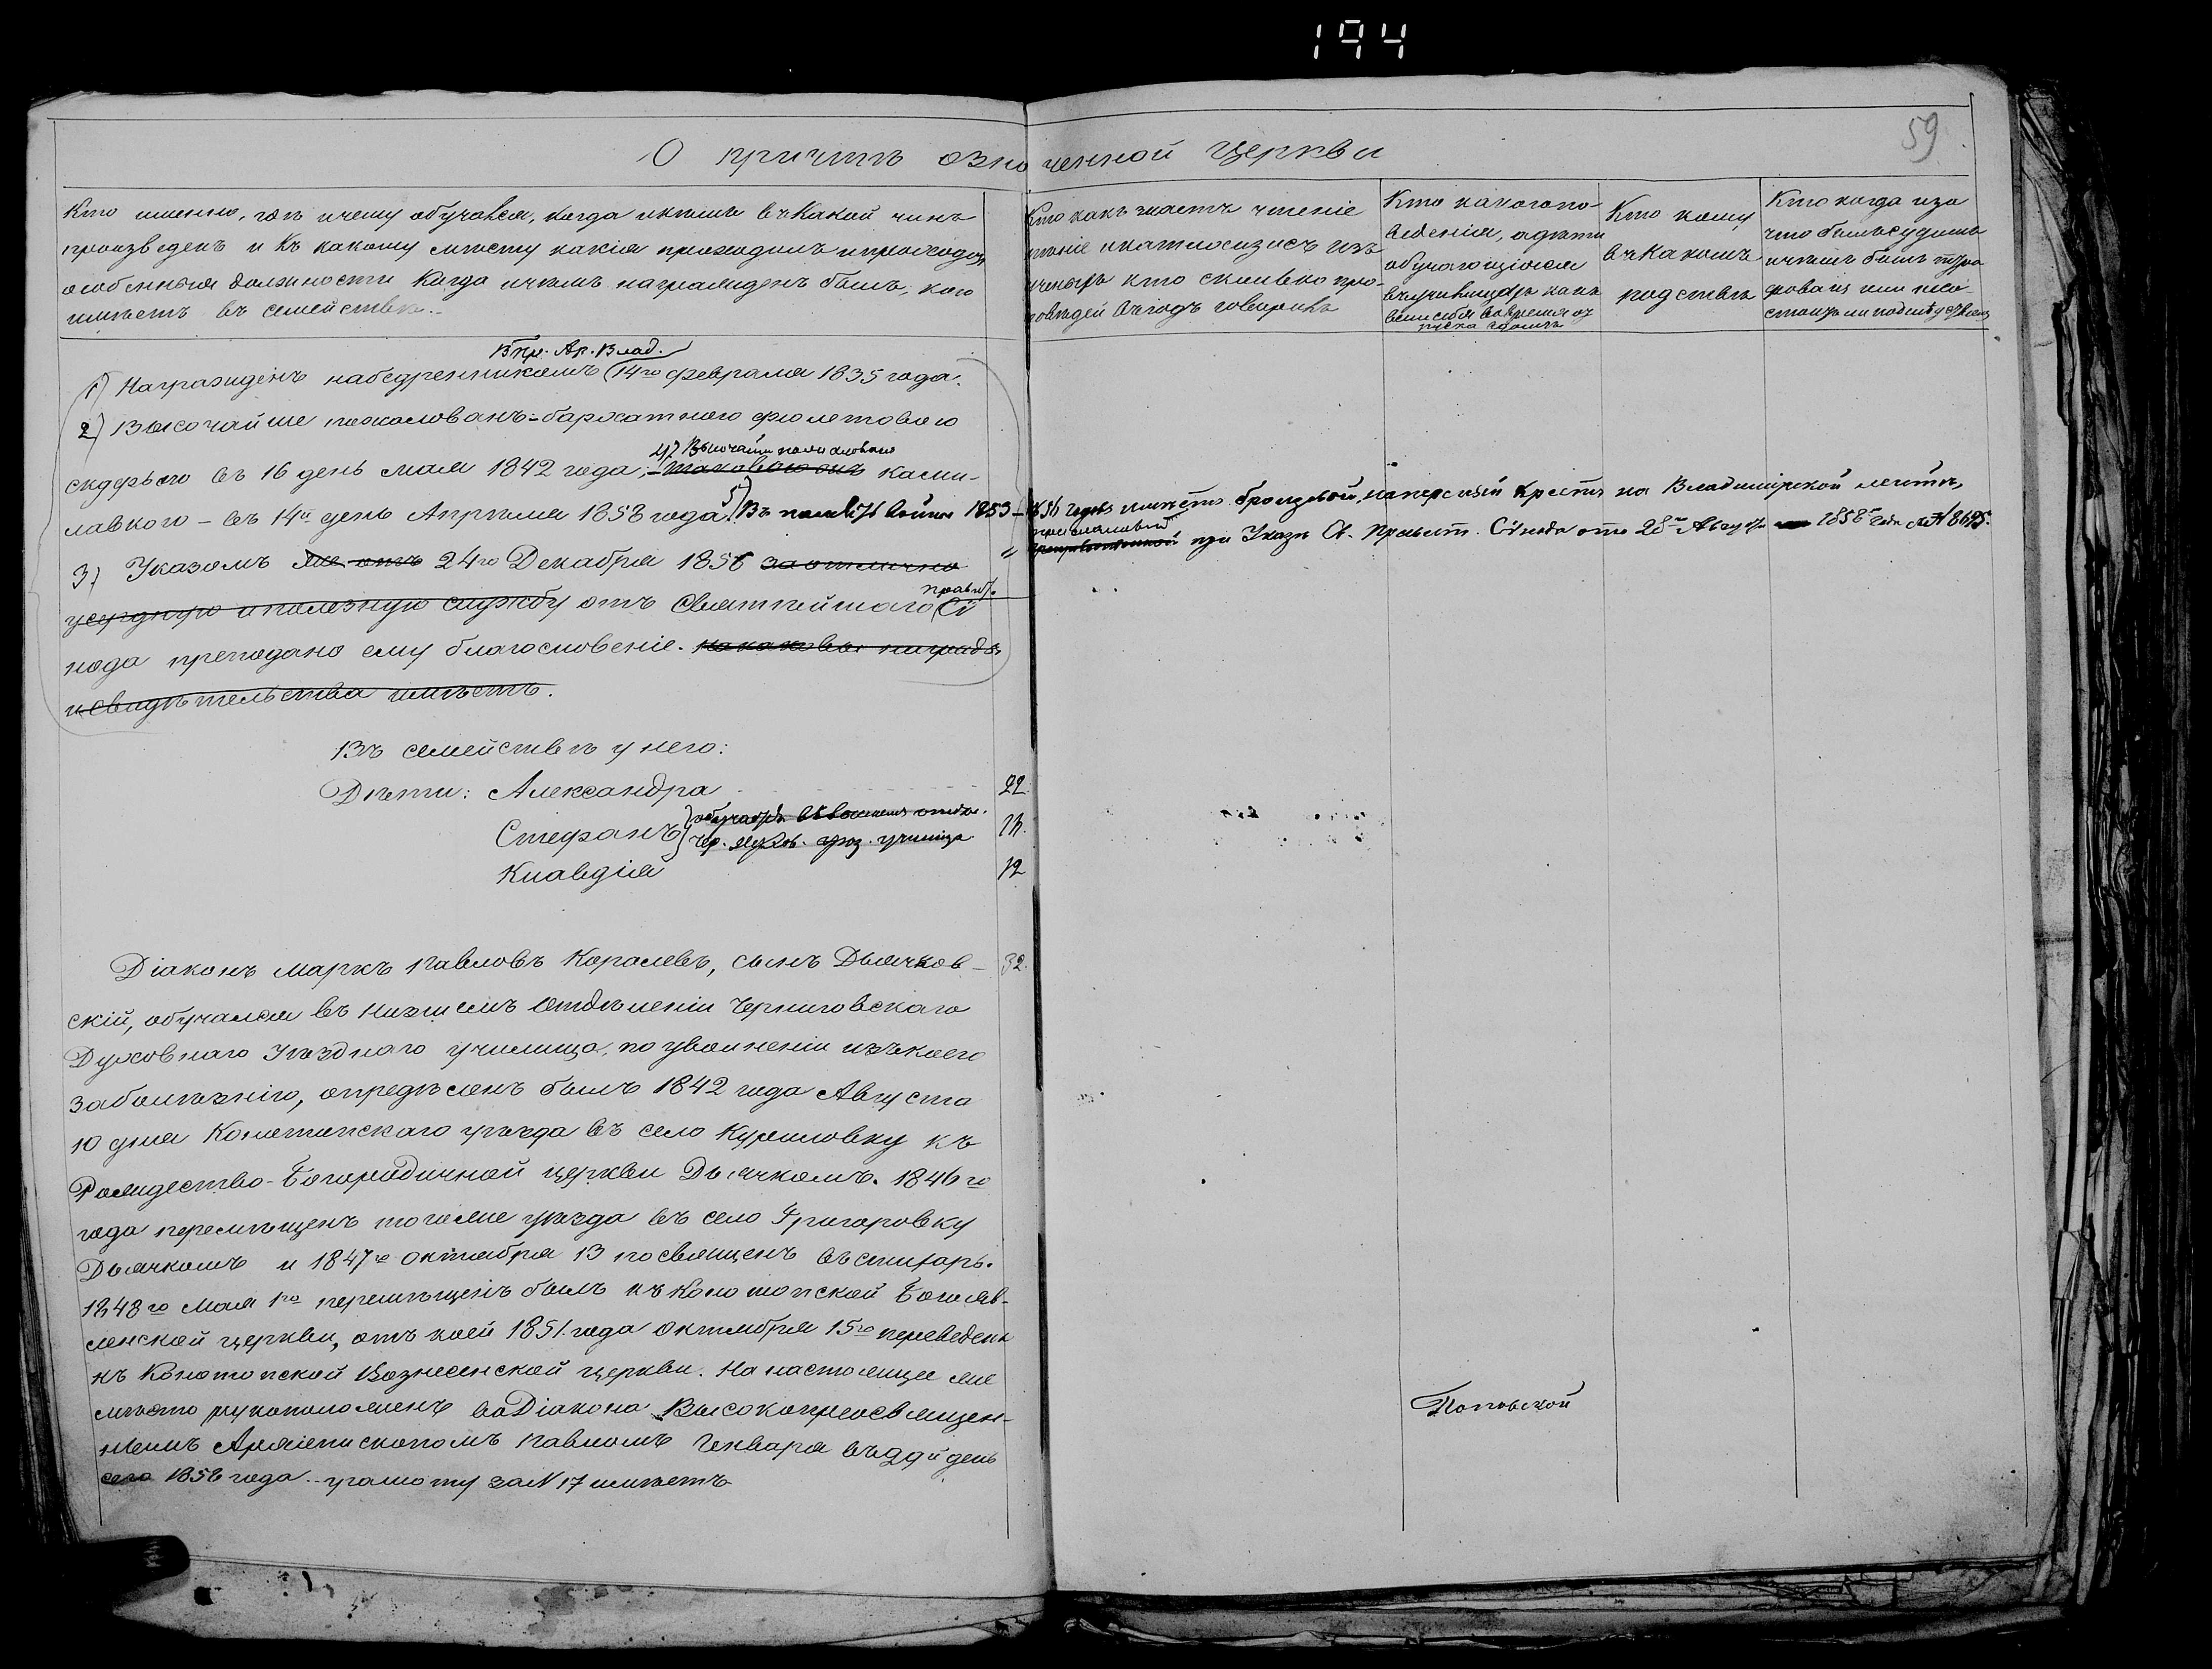 194
59
О причтѣ означенной Церкви
Кто именно, гдѣ и чему обучался, когда и кѣмъ въ какой чинъ
произведенъ и къ какому мѣсту какія проходилъ и проходитъ
особенныя должности когда и чѣмъ награжденъ былъ, кого
имѣетъ въ семействѣ.
Кто какъ знаетъ чтеніе
пѣніе и катихизисъ изъ
ученыхъ кто сколько про-
повѣдей въ годъ говорилъ
Кто какого по-
веденія, а дѣти
обучающіяся
въ училищахъ какъ
вели себя во время от
пуска въ домъ
Кто кому
въ какомъ
родствѣ
Кто когда и за
что былъ судимъ
и чѣмъ былъ штра
фованъ или не со
стоитъ ли подъ слѣдствіемъ
Впр. Ар. Влад.
1) Награжденъ набедренникомъ 14го февраля 1835 года.
2) Высочайше пожалованъ бархатного фіолетового
4) Высочайше пожаловано
скуфьею въ 16 день мая 1842 года, таковою онъ ками-
лавкою - въ 14й день Апрѣля 1858 года. 5) Въ память войны 1853-1856 годовъ имѣетъ бронзовой наперсный Крестъ на Владимірской лентѣ,
присланный при Указѣ Св. Правит. Сѵнода отъ 28го Августа 1858го года за № 8695.
3) Указомъ же отъ 24го Декабря 1856 за отлично
усердную и полезную службу отъ Святѣйшаго Правит. Сѵ
нода преподано ему благословеніе. на каковыя награды
и свидѣтельства имѣетъ.
Въ семействѣ у него:
Дѣти: Александра 22.
Стефанъ обучается въ высшемъ отдѣл.
Чер. Духов. уѣзд. училища
Клавдія 12
Діаконъ Маркъ Павловъ Королевъ, сынъ Дьячков- 32.
скій, обучался въ низшемъ Отдѣленіи Черниговскаго
Духовнаго Уѣзднаго училища, по увольненіи изъ коего
за болѣзнію, опредѣленъ былъ 1842 года Августа
10 дня Конотопскаго уѣзда въ село Куриловку къ
Рождество-Богородичной церкви Дьячкомъ. 1846го
года перемѣщенъ тогоже уѣзда въ село Григоровку
Дьячкомъ и 1847го Октября 13 посвященъ въ стихарь.
1848го Мая 1го перемѣщенъ былъ къ Конотопской Богояв-
ленской церкви, отъ коей 1851 года Октября 15го переведенъ
къ Конотопской Вознесенской церкви. На настоящее же
мѣсто рукоположенъ во Діакона Высокопреосвящен-
нымъ Архіепископомъ Павломъ Генваря въ 29й день
сего 1858 года грамоту за N 17 имѣетъ